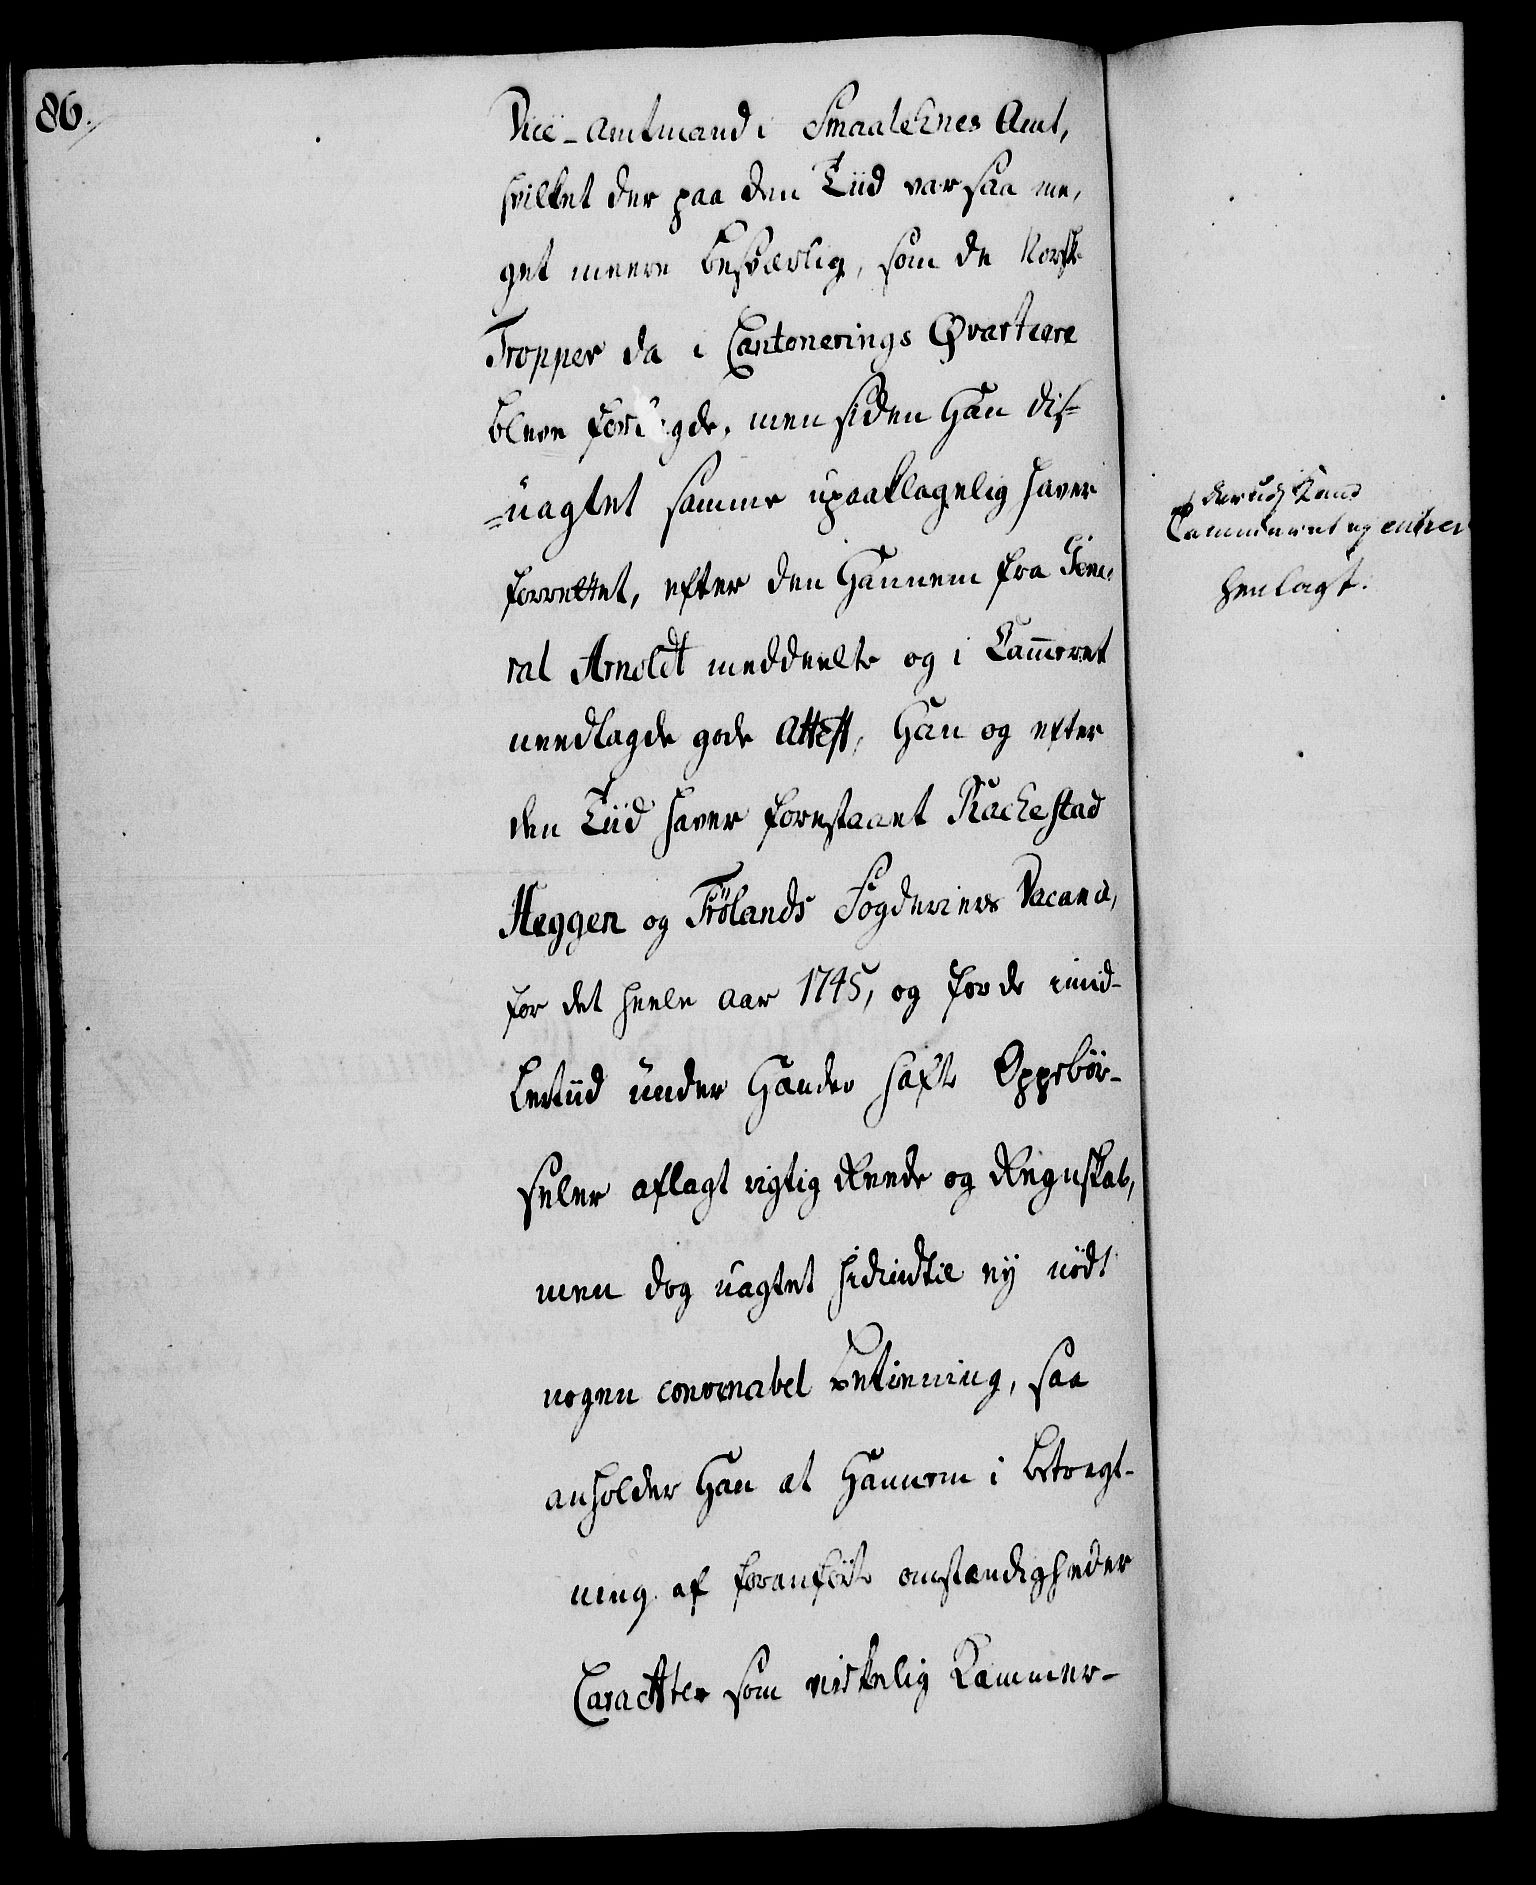 86.
Vice-Amtmand i Smaalehnes Amt,
hvilket der paa den Tiid var saa me,
get meere besværlig, som de Norske
Tropper da i Cantonerings Qvartiere
bleve forlagde, men siden Han dis-
=uagtet samme upaaklagelig haver
forrettet, efter den Hannem fra Gene,
ral Arnoldt meddeelte og i Cammeret
needlagde gode Attest, Han og efter
den Tiid haver forestaaet Rachestad
Heggen og Frölands Fogderiers Vacance,
for det heele Aar 1745, og for de imid-
lertiid under Hænder hafte Oppebör-
seler aflagt rigtig Reede og Regnskab,
men dog uagtet hidindtil ey nödt
nogen convenabel betiening, saa
anholder Han at Hannem i betragt-
ning af foranförte omstændigheder
Caracter som virkelig Kammer-
derudj Kand
Cammeret ej entrer
henlagt.